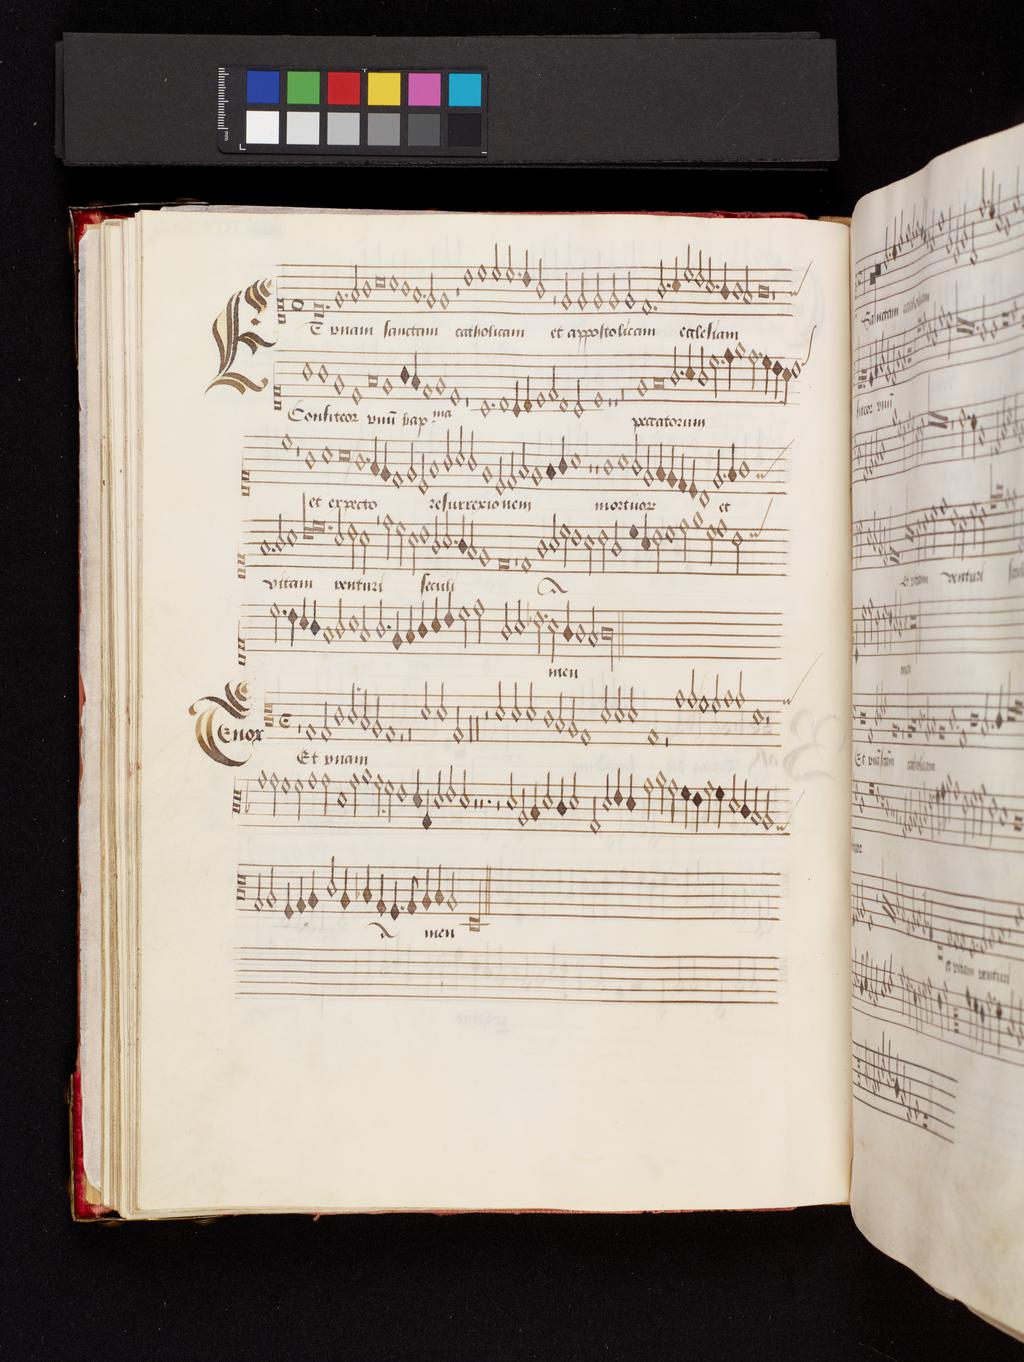 Et vnam sanctam catholicam et appostolicam ecclesiam
Confiteor vnū bap ma peccatorum
et expecto resurrexionem mortuor et
vitam venturi seculi A
men
Tenor
Et vnam
A men
Sanctam catholicam
fiteor vnū
Et vitam venturi
men
Et vnā scām catholicam
et vitam venturi